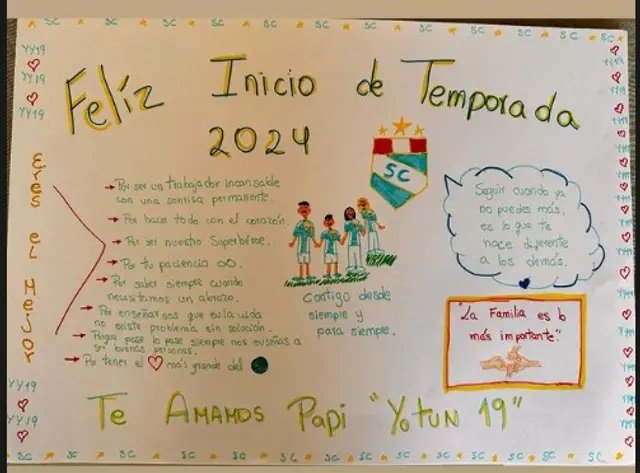 Felíz Inicio de Temporada
2024
SC
Eres el Mejor
→ Por ser un trabajador incansable
con una sonrisa permanente.
→ Por hacer todo con el corazón.
→ Por ser nuestro Superhéroe.
→ Por tu paciencia ∞.
→ Por saber siempre cuando
necesitamos un abrazo.
→ Por enseñarnos que en la vida
no existe problema sin solución.
→ Porque pase lo pase siempre nos enseñas a
ser buenas personas.
→ Por tener el ♡ más grande del
Contigo desde
siempre y
para siempre.
Seguir cuando ya
no puedes más,
es lo que te
hace diferente
a los demás.
"La Familia es lo
más importante."
Te Amamos Papi "Yotun 19"
YY19
YY19
YY19
YY19
YY19